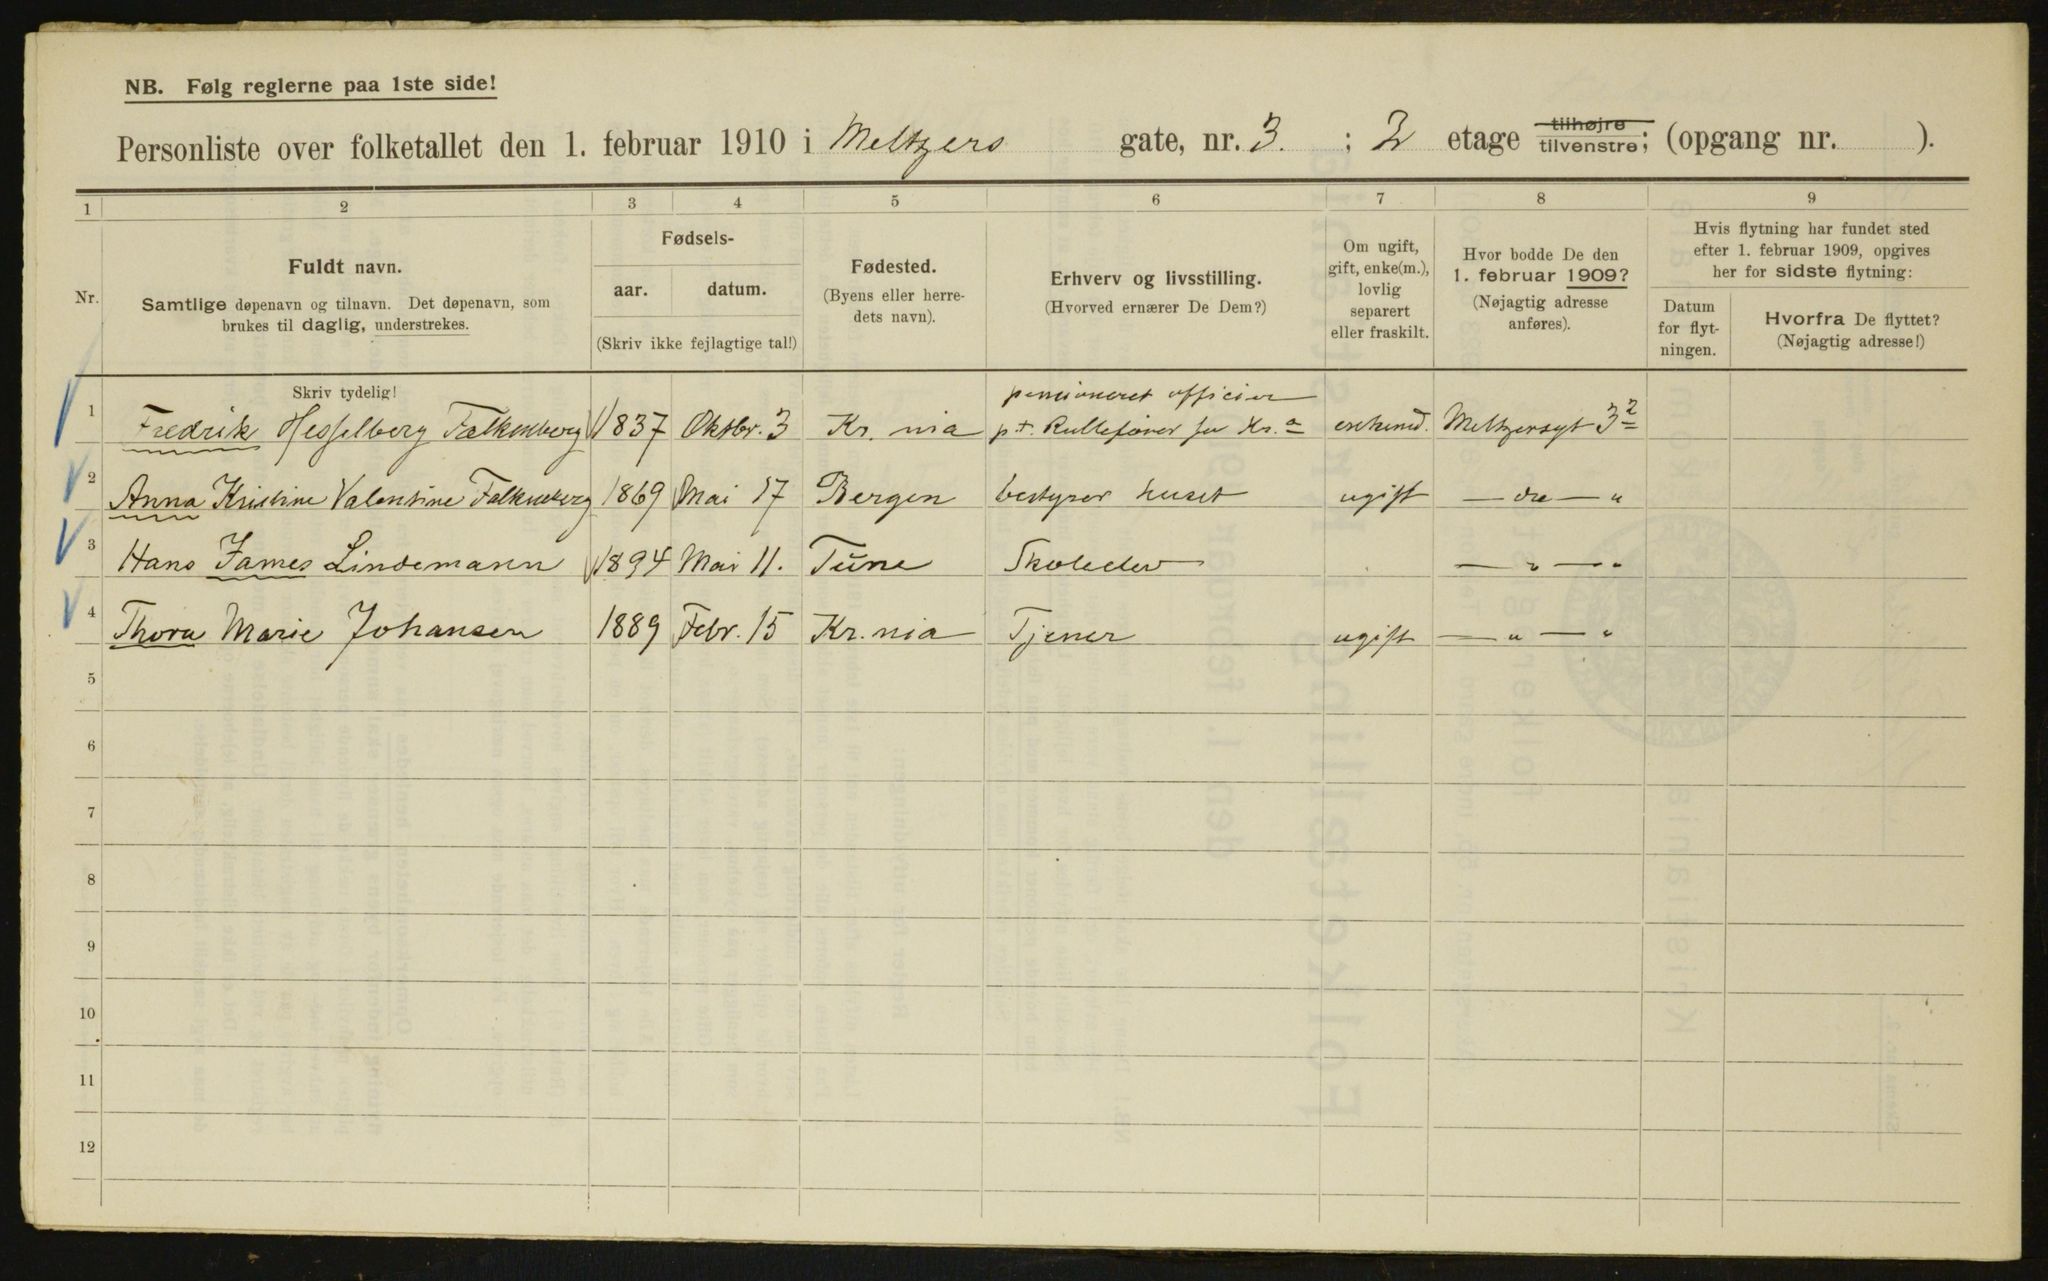 NB. Følg reglerne paa 1ste side!
Personliste over folketallet den 1. februar 1910 i Meltzers gate, nr. 3. ; 2 etage tilhøjre tilvenstre; (opgang nr. ).
1 2 3 4 5 6 7 8 9
Nr.
Fuldt navn.
Samtlige døpenavn og tilnavn. Det døpenavn, som
brukes til daglig, understrekes.
Fødsels-
aar. datum.
(Skriv ikke fejlagtige tal!)
Fødested.
(Byens eller herre-
dets navn).
Erhverv og livsstilling.
(Hvorved ernærer De Dem?)
Om ugift,
gift, enke(m.),
lovlig
separert
eller fraskilt.
Hvor bodde De den
1. februar 1909?
(Nøjagtig adresse
anføres).
Hvis flytning har fundet sted
efter 1. februar 1909, opgives
her for sidste flytning:
Datum
for flyt-
ningen.
Hvorfra De flyttet?
(Nøjagtig adresse!)
Skriv tydelig!
pensioneret officier
1 Fredrik Hesselberg Falkenberg 1837 Oktbr. 3 Kr. nia pt. Rullefører for Kr.a enkemd. Meltzersgt 3 2
2 Anna Kristine Valentine Falkenberg 1869 Mai 17 Bergen bestyrer huset ugift — do — "
3 Hans James Lindemann 1894 Mai 11. Tune Skoleelev — " — "
4 Thora Marie Johansen 1889 Febr. 15 Kr. nia Tjener ugift — " — "
5
6
7
8
9
10
11
12